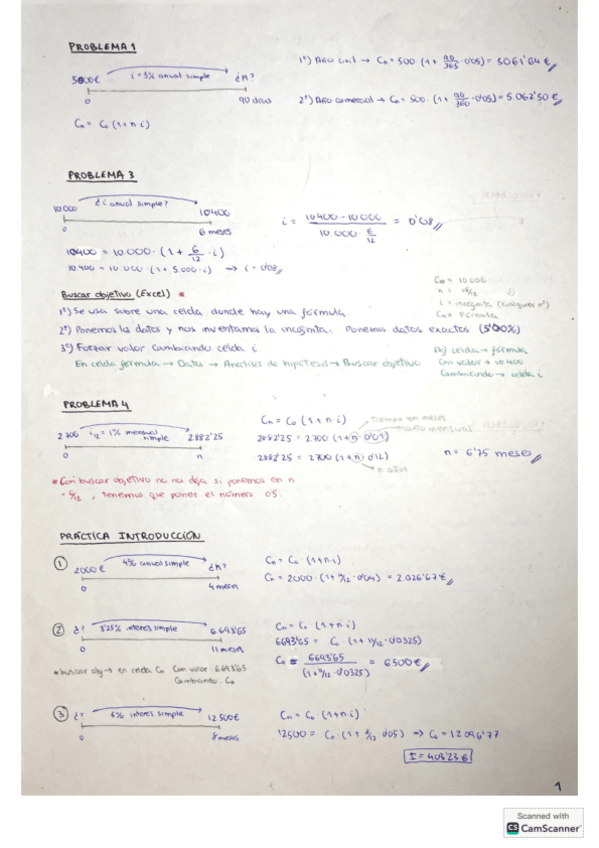 PROBLEMA 1
5000€ i = 5% anual simple ¿M?
0 90 días
Cn = Co (1+n·i)
1º) Año civil → Cn = 500 · (1 + 90/365 · 0'05) = 5061'64 €
2º) Año comercial → Cn = 500 · (1 + 90/360 · 0'05) = 5.062'50 €
PROBLEMA 3
10.000 ¿i anual simple? 10400
0 6 meses
i = (10400 - 10.000) / (10.000 · 6/12) = 0'08
10400 = 10.000 · (1 + 6/12 · i)
10.400 = 10.000 · (1 + 5.000 · i) → i = 0'08
Buscar objetivo (Excel) *
1º) Se usa sobre una celda donde hay una fórmula.
2º) Ponemos los datos y nos inventamos la incógnita. Ponemos datos exactos (5'00%)
3º) Forzar valor cambiando celda i.
En celda fórmula → Datos → Análisis de hipótesis → Buscar objetivo
Co = 10.000
i = incógnita
Cn = Fórmula
celda → fórmula
Con valor → 10.400
Cambiando → celda i
PROBLEMA 4
2700 i12 = 1% mensual simple 2882'25
0 n
Cn = Co (1+n·i)
2882'25 = 2700 (1+n·0'01)
Tiempo en meses
2882'25 = 2700 (1+n·0'12)
n años
n = 6'75 meses
* Con buscar objetivo no nos deja si ponemos en n
6/12, tenemos que poner el número 0'5.
PRÁCTICA INTRODUCCIÓN
① 2000€ 4% anual simple ¿M?
0 4 meses
Cn = Co · (1+n·i)
Cn = 2000 · (1 + 4/12 · 0'04) = 2.026'67€
② ¿? 3'25% interés simple 6.693'65
0 11 meses
Cn = Co · (1+n·i)
6693'65 = Co · (1 + 11/12 · 0'0325)
Co = 6693'65 / (1 + 11/12 · 0'0325) = 6500€
* buscar obj → en celda Cn Con valor 6.693'65
Cambiando: Co
③ ¿? 5% interés simple 12500€
0 8 meses
Cn = Co · (1+n·i)
12500 = Co · (1 + 8/12 · 0'05) ⇒ Co = 12096'77
I = 403'23€
1
Scanned with
CS CamScanner